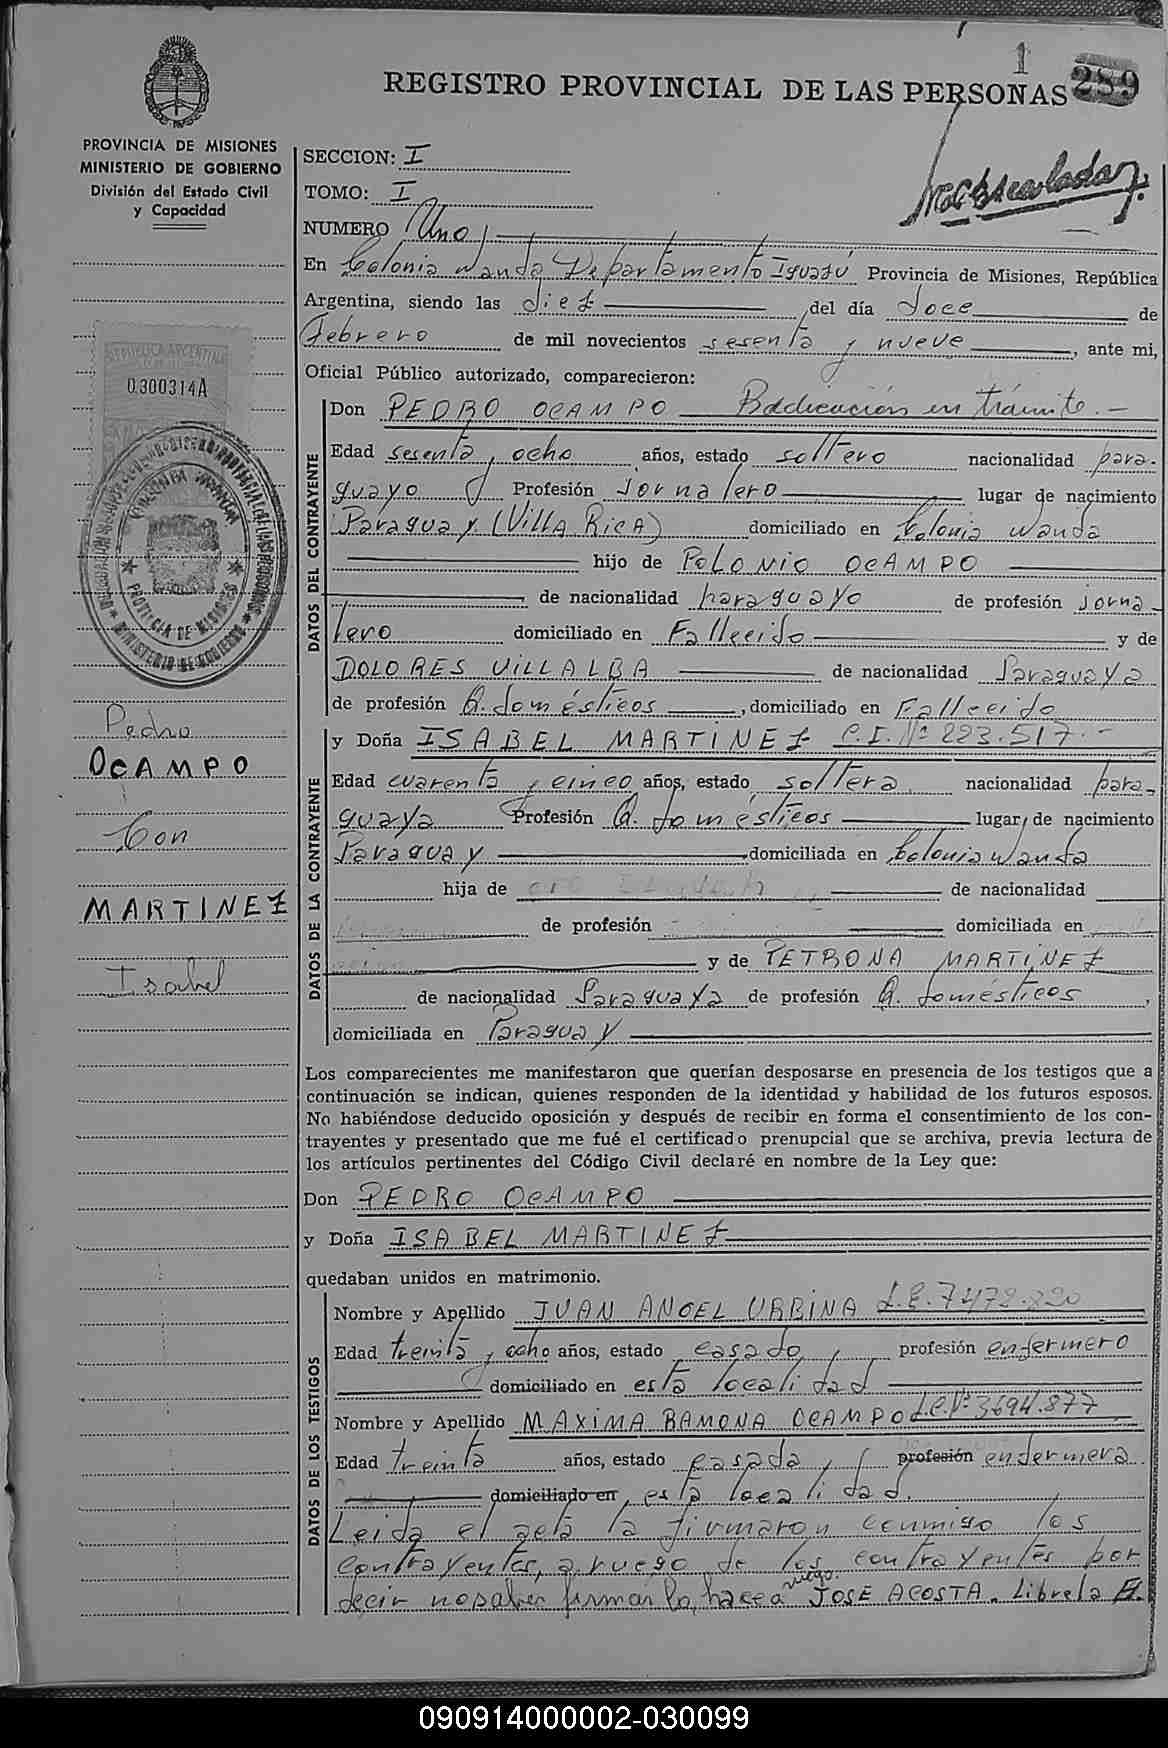 1
289
REGISTRO PROVINCIAL DE LAS PERSONAS
PROVINCIA DE MISIONES
MINISTERIO DE GOBIERNO
División del Estado Civil
y Capacidad
SECCION: I
TOMO: I
NUMERO Uno
En Colonia Wanda Departamento Iguazú Provincia de Misiones, República
Argentina, siendo las diez del día doce de
Febrero de mil novecientos sesenta y nueve, ante mi,
Oficial Público autorizado, comparecieron:
REPUBLICA ARGENTINA
0.300314A
DATOS DEL CONTRAYENTE
Don PEDRO OCAMPO Radicación en trámite.-
Edad sesenta y ocho años, estado soltero nacionalidad para-
guayo Profesión Jornalero lugar de nacimiento
Paraguay (Villa Rica) domiciliado en Colonia Wanda
hijo de POLONIO OCAMPO
de nacionalidad paraguayo de profesión jorna-
lero domiciliado en Fallecido y de
DOLORES VILLALBA de nacionalidad Paraguaya
de profesión Q. domésticos, domiciliado en Fallecido
DATOS DE LA CONTRAYENTE
y Doña ISABEL MARTINEZ C.I. Nº 223.517.-
Edad cuarenta y cinco años, estado soltera nacionalidad para-
guaya Profesión Q. domésticos lugar de nacimiento
Paraguay domiciliada en Colonia Wanda
hija de de nacionalidad
de profesión domiciliada en
y de PETRONA MARTINEZ
de nacionalidad Paraguaya de profesión Q. domésticos,
domiciliada en Paraguay
Pedro
OCAMPO
Con
MARTINEZ
Isabel
Los comparecientes me manifestaron que querían desposarse en presencia de los testigos que a
continuación se indican, quienes responden de la identidad y habilidad de los futuros esposos.
No habiéndose deducido oposición y después de recibir en forma el consentimiento de los con-
trayentes y presentado que me fué el certificado prenupcial que se archiva, previa lectura de
los artículos pertinentes del Código Civil declaré en nombre de la Ley que:
Don PEDRO OCAMPO
y Doña ISABEL MARTINEZ
quedaban unidos en matrimonio.
DATOS DE LOS TESTIGOS
Nombre y Apellido JUAN ANGEL URBINA L.E. 7472.820
Edad treinta y ocho años, estado casado, profesión enfermero
domiciliado en esta localidad
Nombre y Apellido MAXIMA RAMONA OCAMPO L.C. Nº 3694.877
Edad treinta años, estado casada, profesión enfermera
domiciliado en esta localidad.
Leida el acta la firmaron conmigo los
contrayentes, a ruego de los contrayentes por
decir no saber firmar lo hace a ruego JOSE ACOSTA. Libreta E.
090914000002-030099